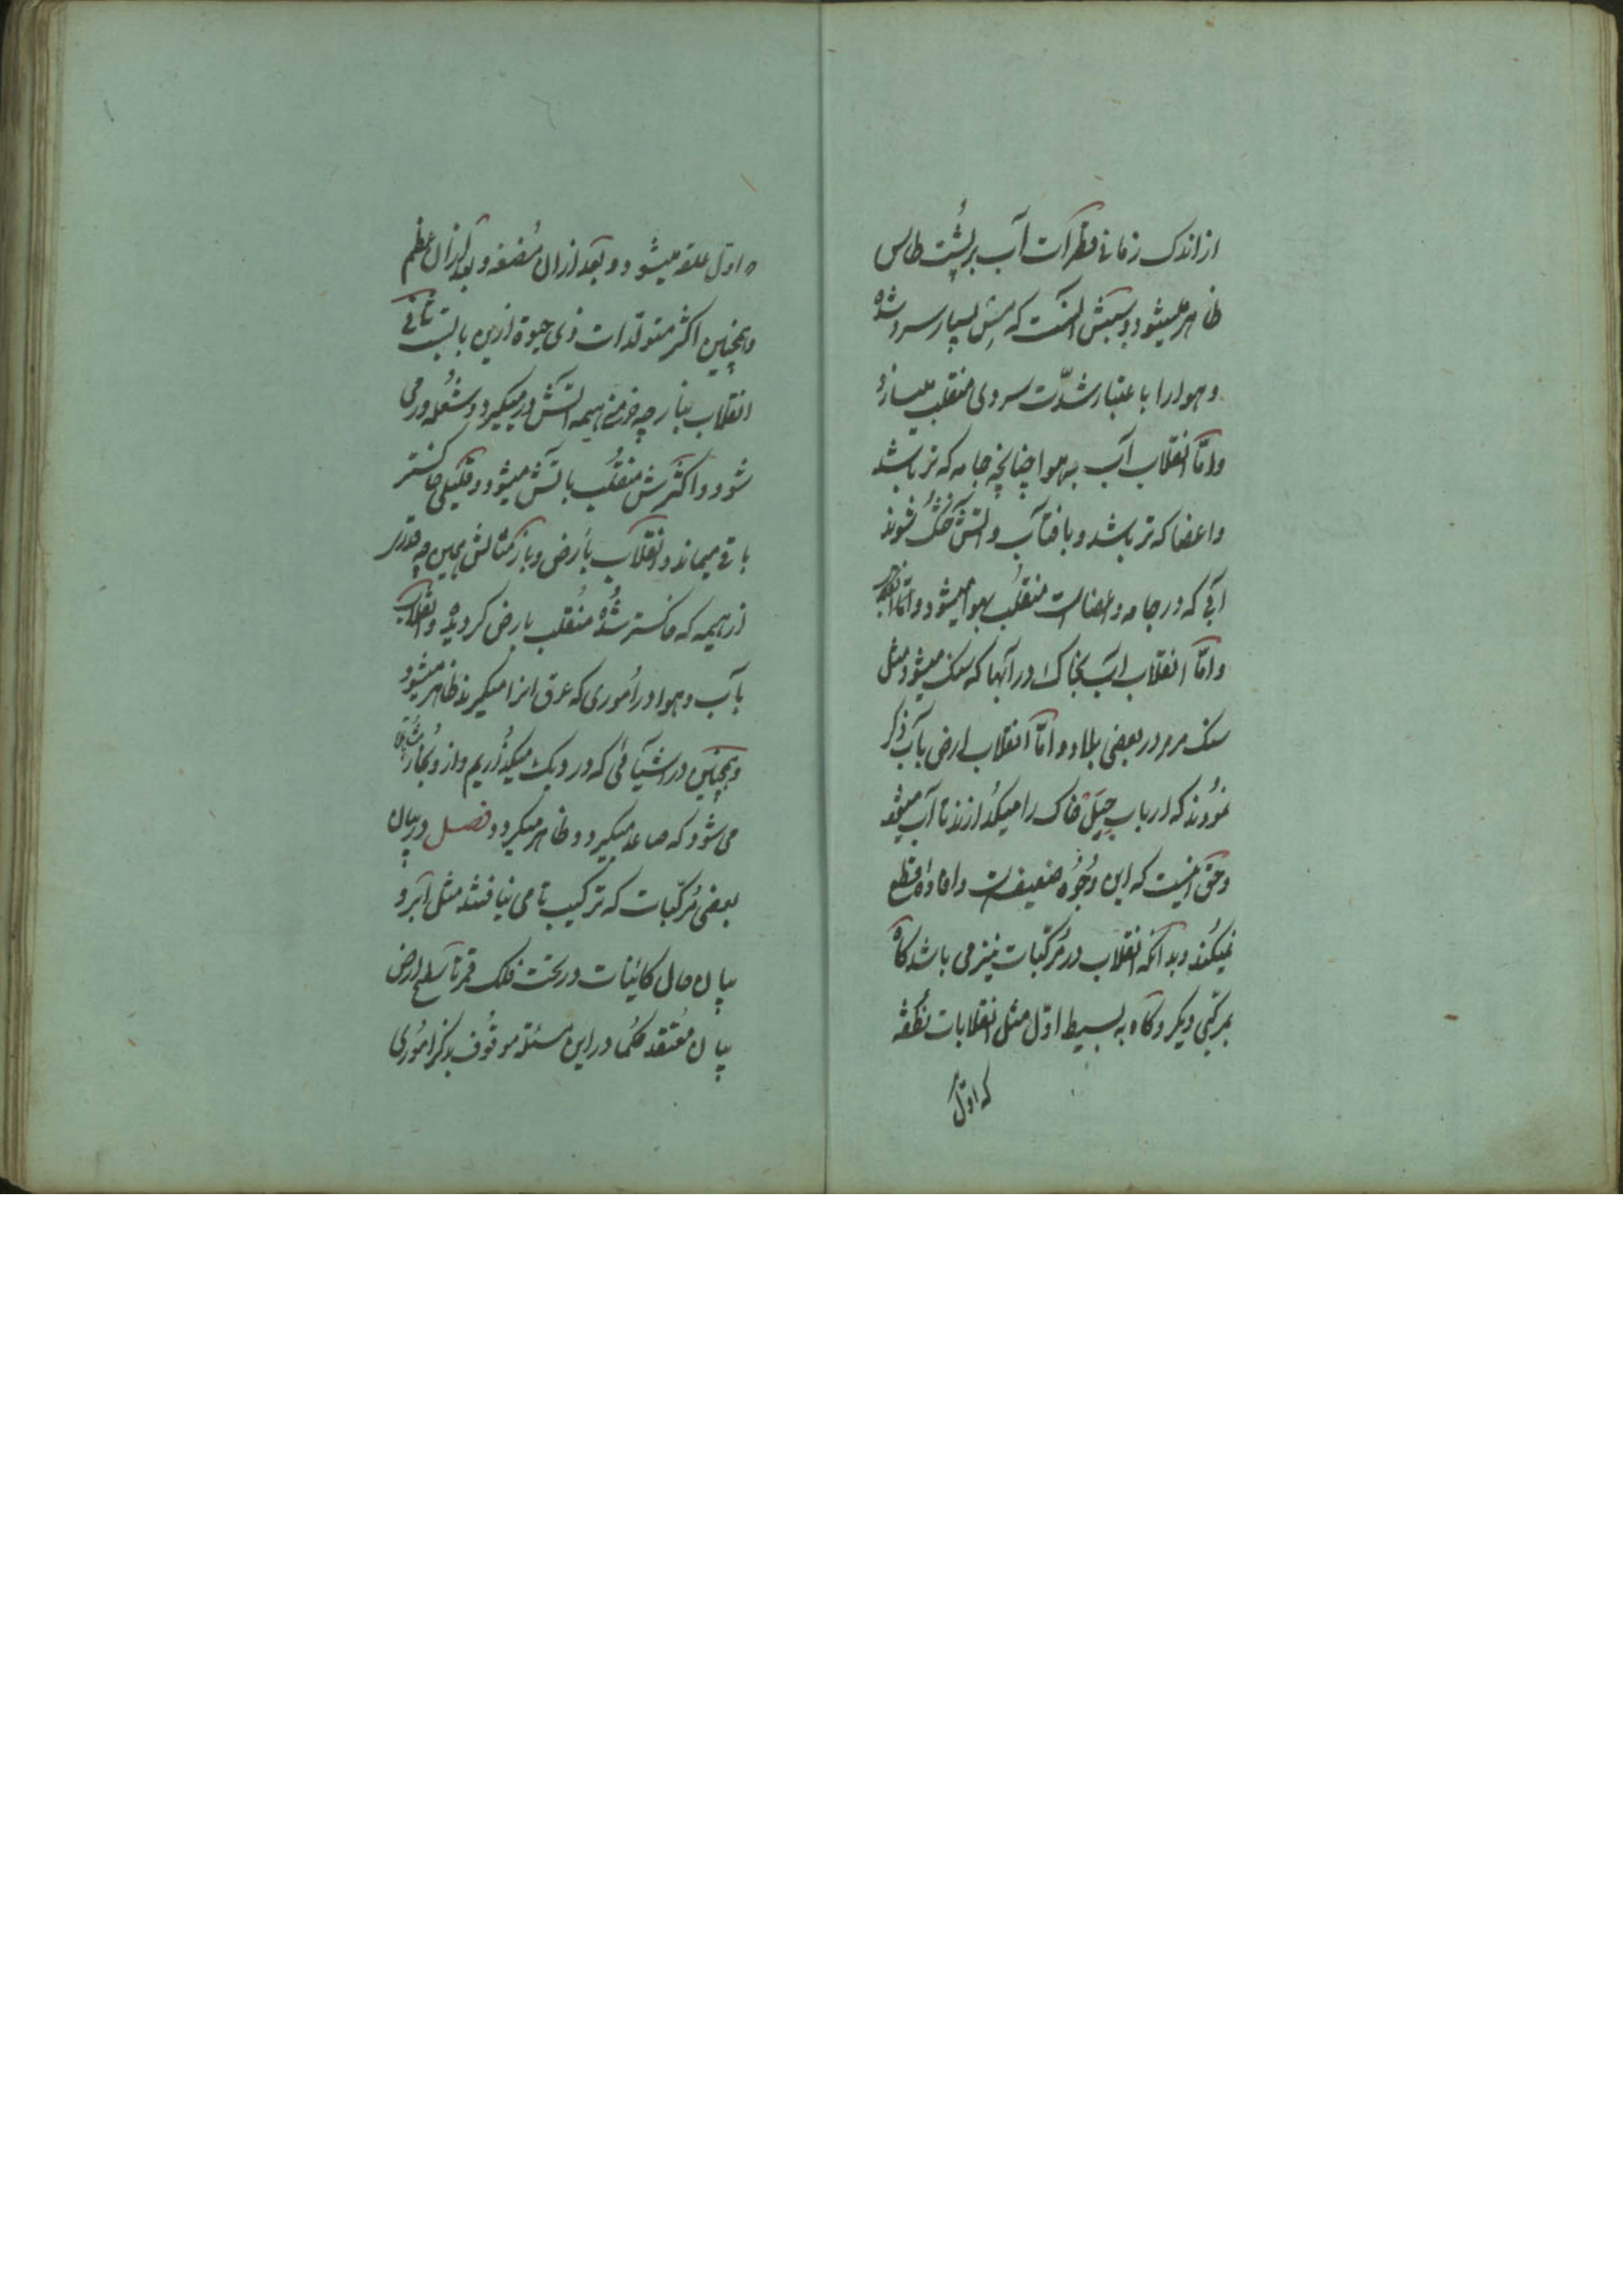 از اندک زمانی قطرات آب بر پُشت طاس
ظاهر میشود و سببش آنست که مس بسیار سرد شده
و هوا را باعتبار شدّت سردی منقلب میسازد
و امّا انقلاب آب بهوا چنانچه جامه که تر باشد
و اعضا که تر باشد و بافتاب و آتش خشک شوند
آبی که در جامه و اعضا است منقلب بهوا میشود
و امّا انقلاب آب بخاک در آبها که سنک میشود مثل
سنک مرمر در بعضی بلاد و امّا انقلاب ارض بآب ذکر
نمودند که ارباب حِیَل خاک را میکُدازند تا آب میشود
و حق آنست که این وُجُوه ضعیف است و افاده قطع
نمیکند و بدانکه انقلاب در مُرکّبات نیز می باشد کاه
بمرکّبی دیکر و کاه به بسیط اوّل مثل انقلابات نُطفه
که اوّل
که اوّل علقه میشود و بعد ازان مُضغه و بعد ازان عظم
و همچنین اکثر متولّدات ذی حیوة ازین بابست ثانی
انقلاب بنار چه خرمن هیمه آتش در میکیرد و شُعله ور می
شود و اکثرش منقلب باتش میشود و قلیلی خاکستر
باقی میماند و انقلاب بأرض و باز مثالش همین چه قدر
از هیمه که خاکستر شُده مُنقلب بارض کردیده و انقلاب
بآب و هوا در اُموری که عرق انرا میکیرند ظاهر میشود
و همچنین در اشیائی که در دیک میکذُاریم و از و بُخار
می شود که صاعد میکردد و ظاهر میکردد فصل در بیان
بعضی مُرکّبات که ترکیب تامی نیافتند مثل ابر و
بیان حال کائنات در تحت فلک قمر تا سطح ارض
بیان مُعتقد حُکما در این مسئله موقُوف بذکر امُوری